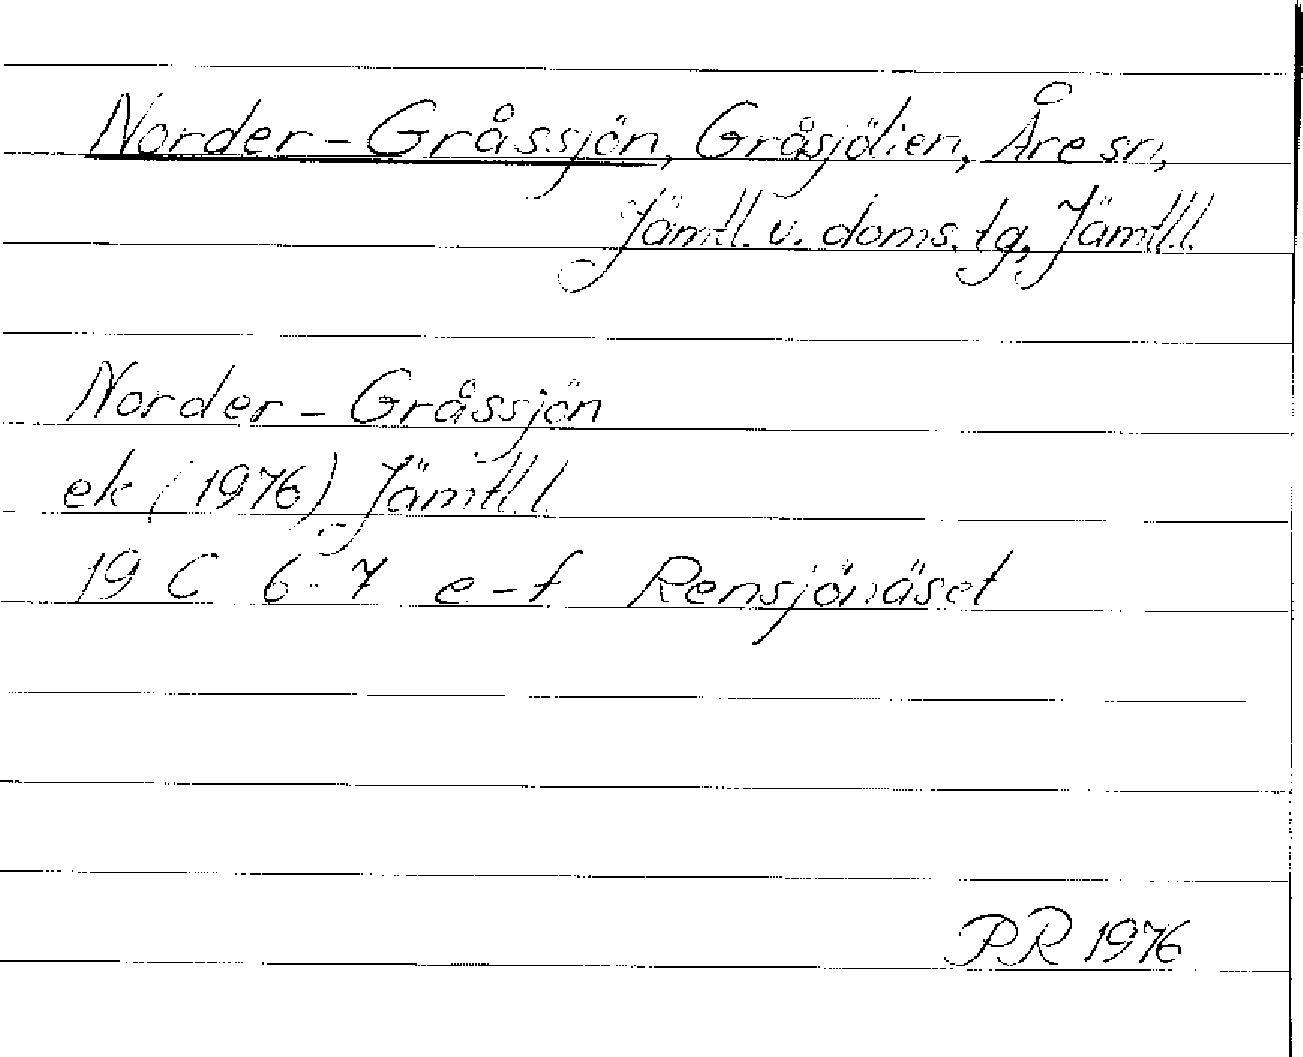 Norder-Gråssjön, Gråsjölien, Åre sn,
Jämtl. v. doms. tg, Jämtl.l.
Norder-Gråssjön
ek (1976) Jämtl.l.
19 C 6-7 e-f Rensjönäset
PR 1976